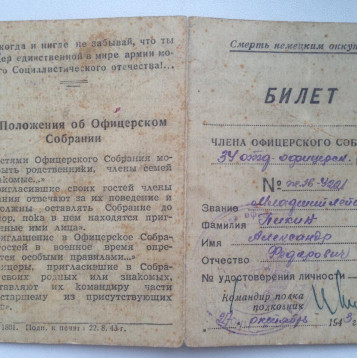 когда и нигде не забывай, что ты
цер единственной в мире армии мо-
го Социалистического отечества!...
Положения об Офицерском
Собрании
стями Офицерского Собрания мо-
быть родственники, члены семей
акомые..."
ригласившие своих гостей члены
ания отвечают за их поведение и
лжны оставлять Собрание до
ор, пока в нем находятся приг-
ные ими лица".
иглашение в Офицерское Собра-
остей в военное время опре-
тся особыми правилами..."
ицеры, пригласившие в Со-
своих родных или знакомых,
тавляют их командиру части
таршему из присутствующих
1801. Подп. к печат: 22. 8. 43 г.
Смерть немецким оккуп
БИЛЕТ
ЧЛЕНА ОФИЦЕРСКОГО СОБ
34 отд. офицерск.
№
Звание Младший лей
Фамилия Пикин
Имя Александр
Отчество Федорович
№ удостоверения личности
Командир полка
полковник
27 октября 194